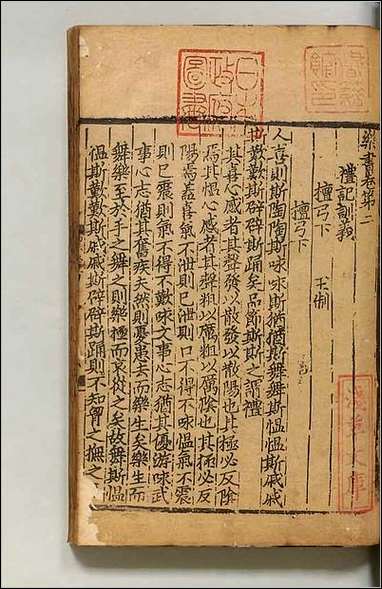 樂書卷第二
禮記訓義
檀弓下　王制
檀弓下
人喜則斯陶陶斯咏咏斯猶猶斯舞舞斯慍慍斯戚戚
斯歎歎斯辟辟斯踊矣品節斯斯之謂禮
其喜心感者其聲發以散發以散陽也其極必反陰
焉其怒心感者其聲粗以厲粗以厲陰也其極必反
陽焉蓋喜氣不泄則已泄則口不得不咏慍氣不震
則已震則氣不得不歎咏文事心志猶其優游咏武
事心志猶其奮疾夫然則憂患去而樂生矣樂生而
舞樂至於手之舞之則樂極而哀從之矣故舞斯慍
慍斯歎歎斯戚戚斯辟辟斯踊則不知胷之撫之